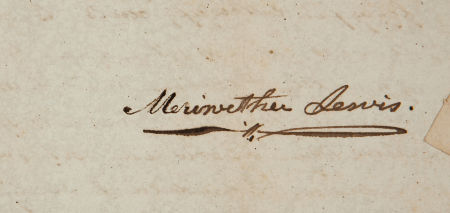 Meriwether Lewis.